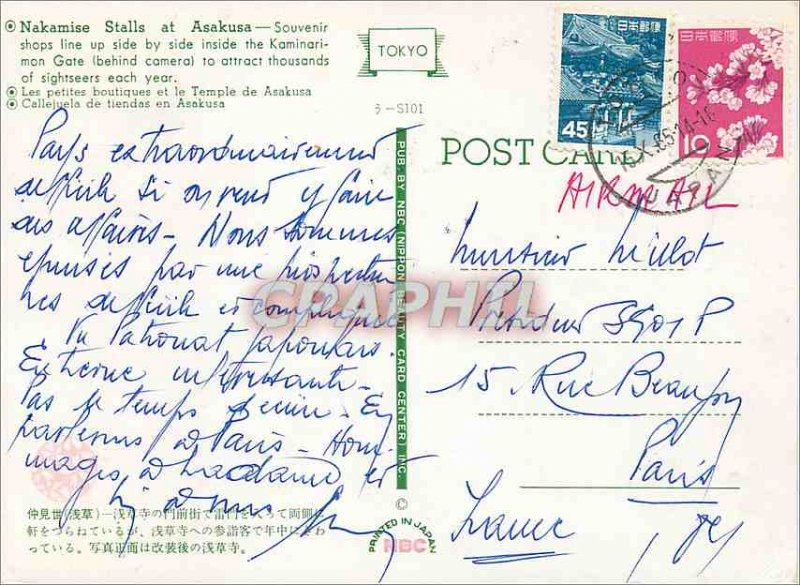 Nakamise Stalls at Asakusa — Souvenir
shops line up side by side inside the Kaminari-
mon Gate (behind camera) to attract thousands
of sightseers each year.
Les petites boutiques et le Temple de Asakusa
Callejuela de tiendas en Asakusa
TOKYO
ろ-S101
日本郵便
45
日本郵便
10
JAPAN
POST CARD
AIRMAIL
Pays extraordinairement
difficile si on veut y faire
des affaires - Nous sommes
épuisés par une prospection
très difficile et compliquée
du Patronat Japonais.
Extrême intéressante -
Pas le temps d'écrire - En
parlerons à Paris - Hom
mages à Madame et
Monsieur
Président
15 Rue Beaujon
Paris
France
PUB. BY NBC (NIPPON BEAUTY CARD CENTER) INC.
©
PRINTED IN JAPAN
NBC
CPAPHIL
仲見世(浅草)—浅草寺の門前街で雷門を入って両側に
軒をつらねているが、浅草寺への参詣客で年中にぎわ
っている。写真正面は改装後の浅草寺。